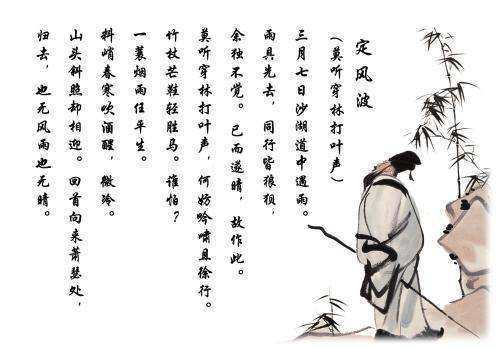 定风波
（莫听穿林打叶声）
三月七日沙湖道中遇雨。
雨具先去，同行皆狼狈，
余独不觉。已而遂晴，故作此。
莫听穿林打叶声，何妨吟啸且徐行。
竹杖芒鞋轻胜马。谁怕？
一蓑烟雨任平生。
料峭春寒吹酒醒，微冷。
山头斜照却相迎。回首向来萧瑟处，
归去，也无风雨也无晴。